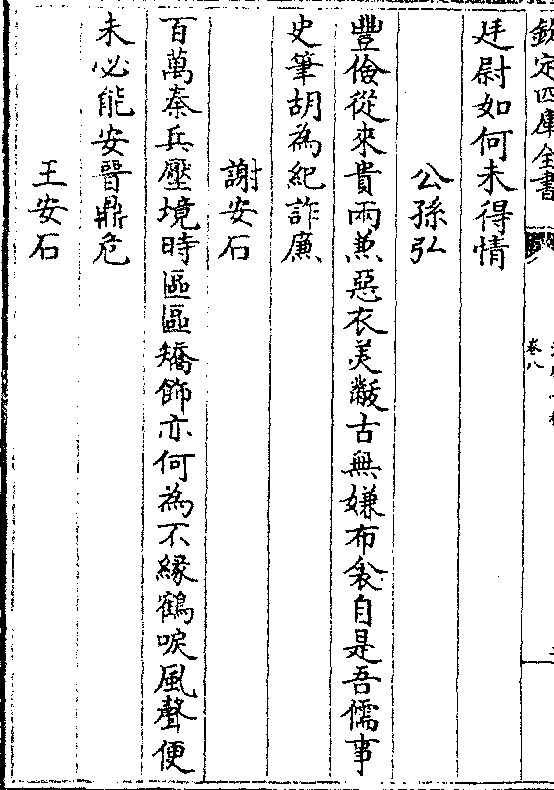 欽定四庫全書
卷八
廷尉如何未得情
公孫弘
豐儉從來貴兩兼惡衣美黻古無嫌布衾自是吾儒事
史筆胡為紀詐廉
謝安石
百萬秦兵壓境時區區矯飾亦何為不緣鶴唳風聲便
未必能安晉鼎危
王安石